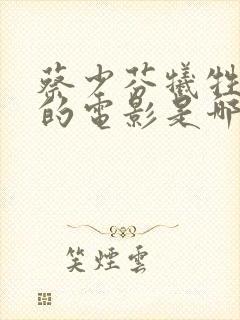 蔡少芬犧牲
的電影是哪
笑煙雲